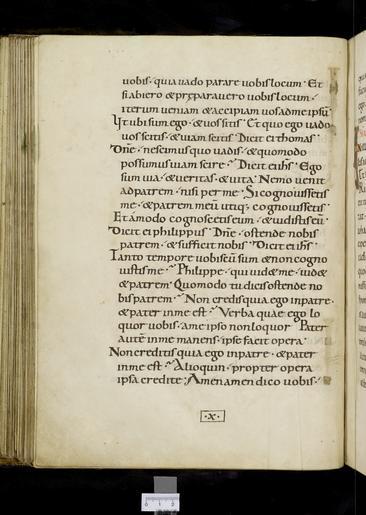 uobis · quia uado parare uobis locum · Et
si abiero & pręparauero uobis locum ·
iterum ueniam & accipiam uos ad me ipsū ·
Ut ubi sum ego · & uos sitis · Et quo ego uado
uos scitis · & uiam scitis · Dicit ei thomas ·
Dn̄e · nescimus quo uadis · & quomodo
possumus uiam scire · Dicit ei ih̄s · Ego
sum uia · & ueritas · & uita · Nemo uenit
ad patrem · nisi per me · Si cognouissetis
me · & patrem meū utiq; cognouissetis ·
Et amodo cognoscetis eum · & uidistis eū ·
Dicit ei philippus · Dn̄e · ostende nobis
patrem · & sufficit nobis · Dicit ei ih̄s ·
Tanto tempore uobiscū sum & non cogno
uistis me · Philippe · qui uid& me · uid&
& patrem · Quomodo tu dicis ostende no
bis patrem · Non credis quia ego in patre ·
& pater in me est · Verba quae ego lo
quor uobis · a me ipso non loquor · Pater
autē in me manens · ipse facit opera ·
Non creditis quia ego in patre · & pater
in me est · Alioquin · propter opera
ipsa credite ; Amen amen dico uobis ·
· x ·
0 1 2